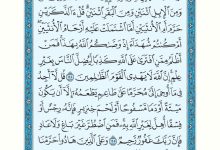 وَمِنَ ٱلْإِبِلِ ٱثْنَيْنِ وَمِنَ ٱلْبَقَرِ ٱثْنَيْنِ قُلْ ءَآلذَّكَرَيْنِ
حَرَّمَ أَمِ ٱلْأُنثَيَيْنِ أَمَّا ٱشْتَمَلَتْ عَلَيْهِ أَرْحَامُ ٱلْأُنثَيَيْنِ
أَمْ كُنتُمْ شُهَدَآءَ إِذْ وَصَّىٰكُمُ ٱللَّهُ بِهَٰذَا فَمَنْ
أَظْلَمُ مِمَّنِ ٱفْتَرَىٰ عَلَى ٱللَّهِ كَذِبًا لِّيُضِلَّ ٱلنَّاسَ بِغَيْرِ
عِلْمٍ إِنَّ ٱللَّهَ لَا يَهْدِى ٱلْقَوْمَ ٱلظَّٰلِمِينَ ١٤٤ قُل لَّآ أَجِدُ
فِى مَآ أُوحِىَ إِلَىَّ مُحَرَّمًا عَلَىٰ طَاعِمٍ يَطْعَمُهُۥٓ إِلَّآ أَن يَكُونَ
مَيْتَةً أَوْ دَمًا مَّسْفُوحًا أَوْ لَحْمَ خِنزِيرٍ فَإِنَّهُۥ رِجْسٌ أَوْ
فِسْقًا أُهِلَّ لِغَيْرِ ٱللَّهِ بِهِۦ فَمَنِ ٱضْطُرَّ غَيْرَ بَاغٍ وَلَا عَادٍ
فَإِنَّ رَبَّكَ غَفُورٌ رَّحِيمٌ ١٤٥ وَعَلَى ٱلَّذِينَ هَادُوا۟ حَرَّمْنَا